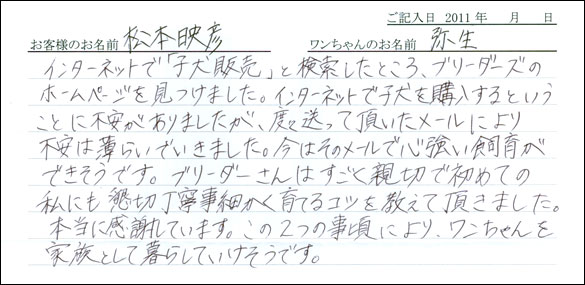 ご記入日 2011年 月 日
お客様のお名前 松本映彦 ワンちゃんのお名前 弥生
インターネットで「子犬販売」と検索したところ、ブリーダーズの
ホームページを見つけました。インターネットで子犬を購入するという
ことに不安がありましたが、度々送って頂いたメールにより
不安は薄らいでいきました。今はそのメールで心強い飼育が
できそうです。ブリーダーさんはすごく親切で初めての
私にも懇切丁寧事細かく育てるコツを教えて頂きました。
本当に感謝しています。この2つの事項により、ワンちゃんを
家族として暮らしていけそうです。